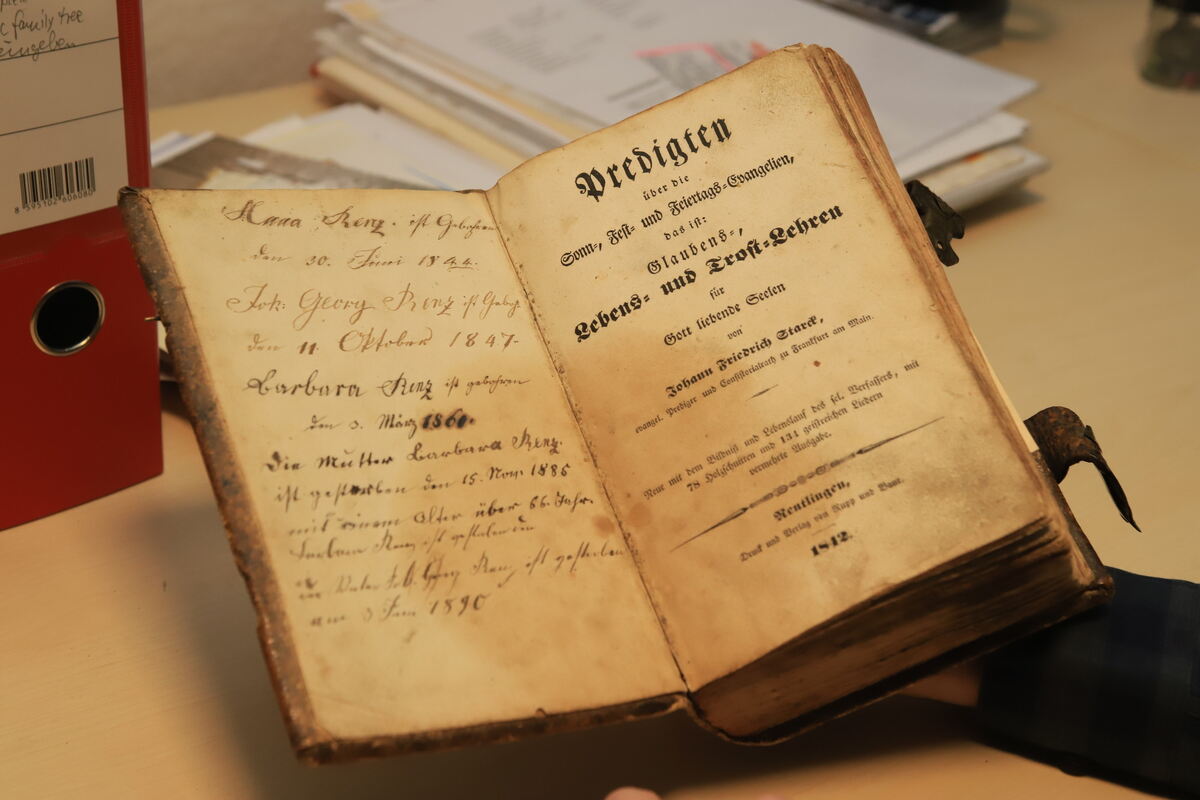 c family tree
eingeben
8 595102 606080
Anna Renz. ist Gebohren
den 30. Juni 1844.
Joh: Georg Renz ist Geboh
den 11. Oktober 1847.
Barbara Renz ist gebohren
den 3. März 1860.
Die Mutter Barbara Renz.
ist gestorben den 15. Nov. 1885
mit einem Alter über 66. Jahr.
Barbara Renz ist gestorben den
der Vater Joh. Georg Renz ist gestorben
am 3 1890
Predigten
über die
Sonn-, Fest- und Feiertags-Evangelien,
das ist:
Glaubens-,
Lebens- und Trost-Lehren
für
Gott liebende Seelen
von
Johann Friedrich Starck,
evangel. Prediger und Consistorialrath zu Frankfurt am Main.
Neue mit dem Bildniß und Lebenslauf des sel. Verfassers, mit
78 Holzschnitten und 131 geistreichen Liedern
vermehrte Ausgabe.
Reutlingen,
Druck und Verlag von Rupp und Baur.
1842.